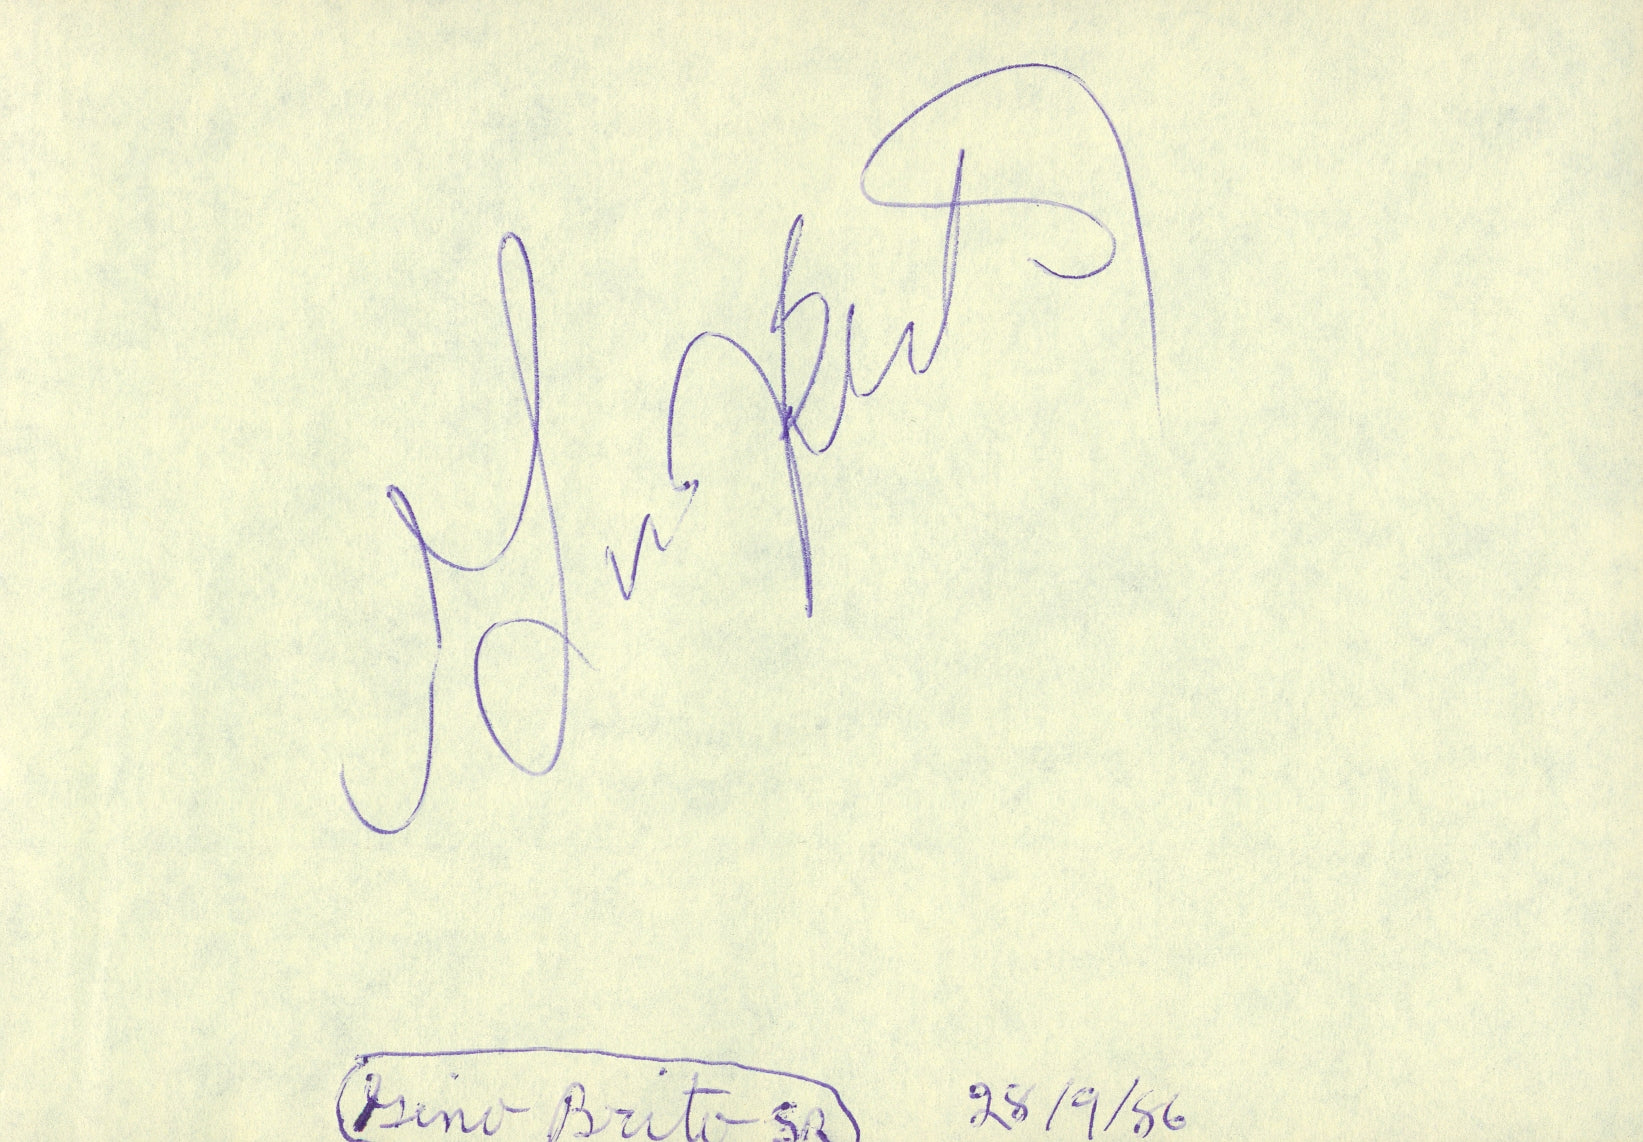 Gino Brito
Gino Brito SR 28/9/86